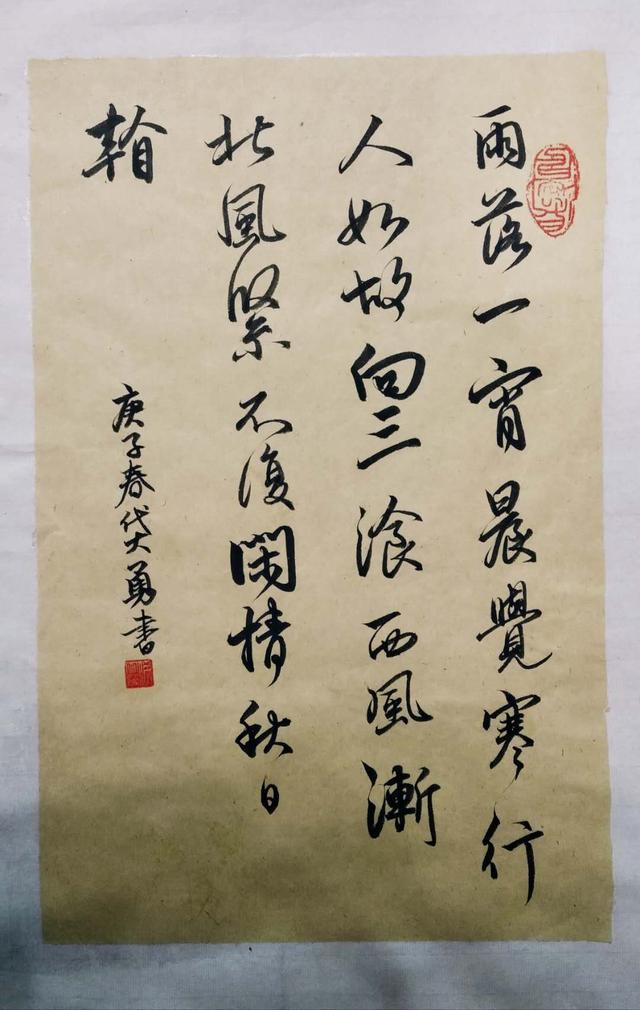 雨落一宵晨覺寒行
人如故向三湌西風漸
北風緊不復閑情秋日
翰
庚子春大勇書